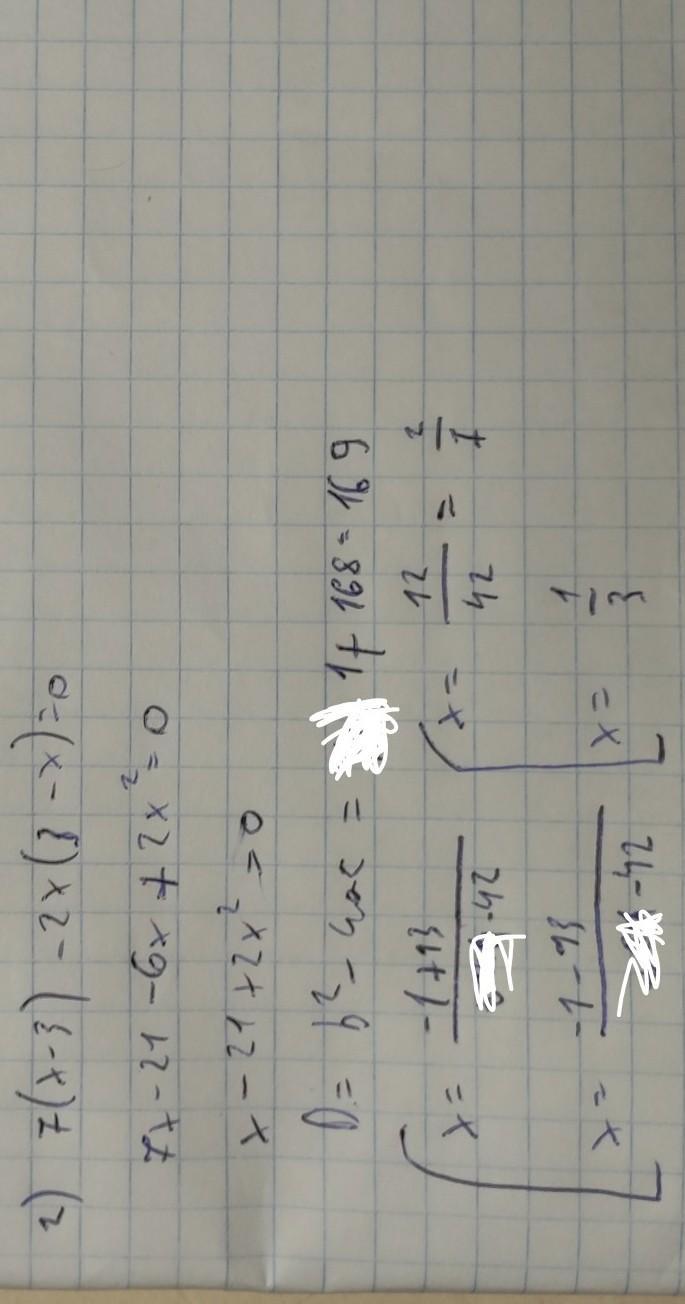 2) 7(x-3) - 2x(3-x)=0
7x - 21 - 6x + 2x² = 0
x - 21 + 2x² = 0
D = b² - 4ac = 1 + 168 = 169
[ x = (-1+13)/-42 [ x = 12/42 = 2/7
[ x = (-1-13)/-42 [ x = 1/3